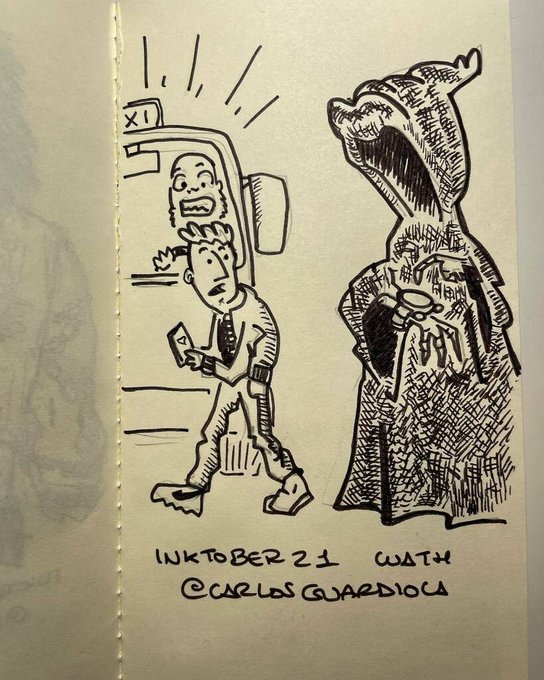 XI
INKTOBER 21 WATH
@CARLOSGUARDIOLA